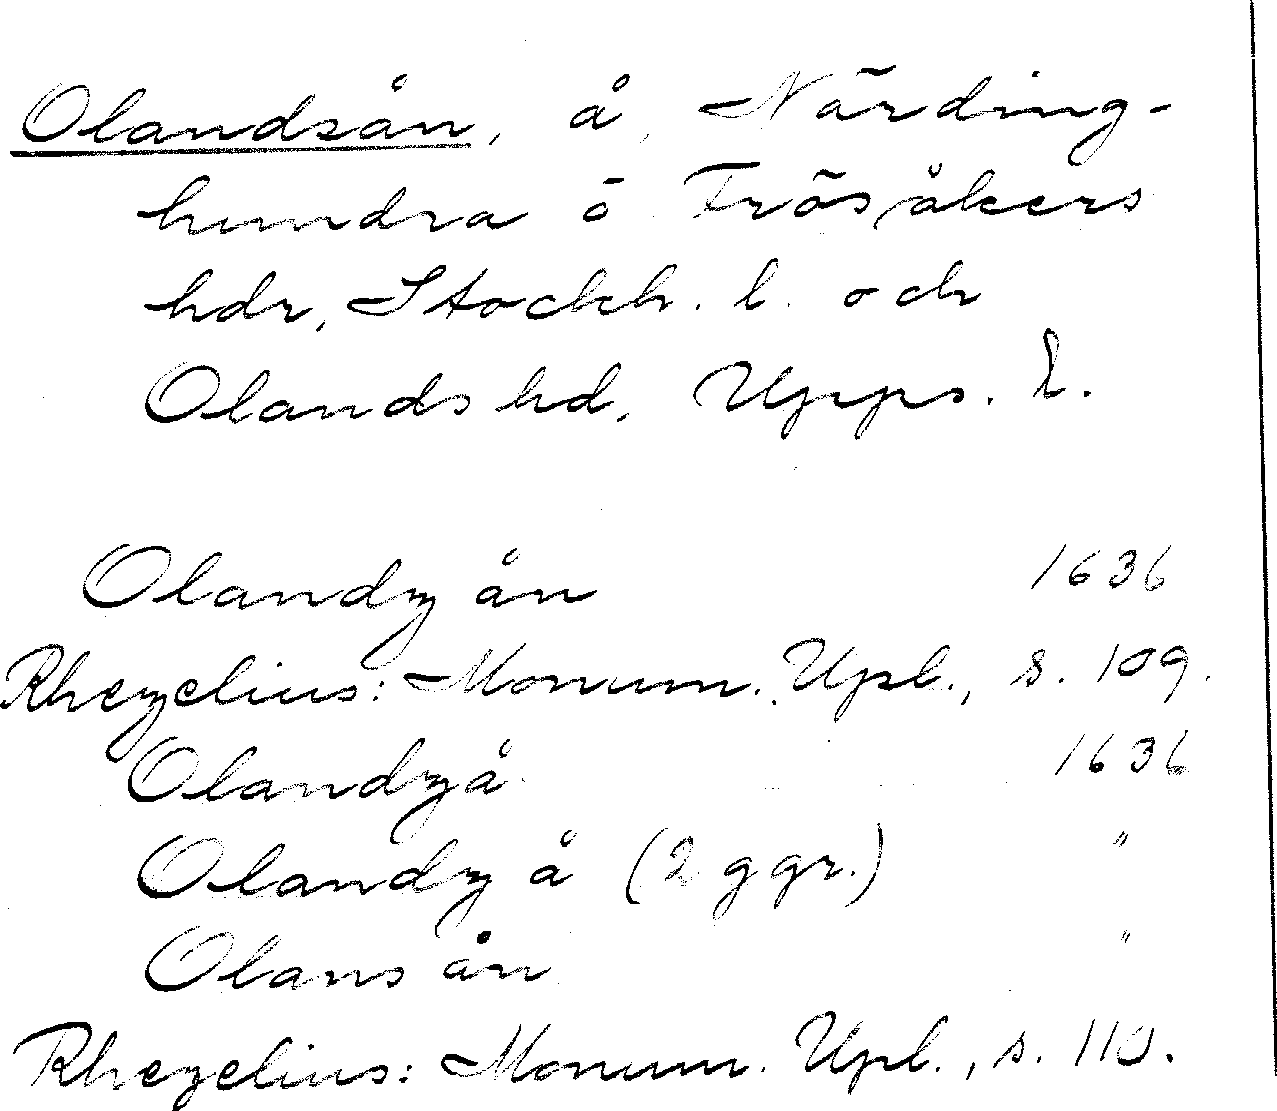 Olandsån, å, Närding-
hundra o Frösåkers
hdr, Stockh. l. och
Olands hd, Upps. l.
Olandz ån 1636
Rhezelius: Monum. Upl., s. 109.
Olandzå 1636
Olandz å (2 ggr.) "
Olans ån "
Rhezelius: Monum. Upl., s. 110.